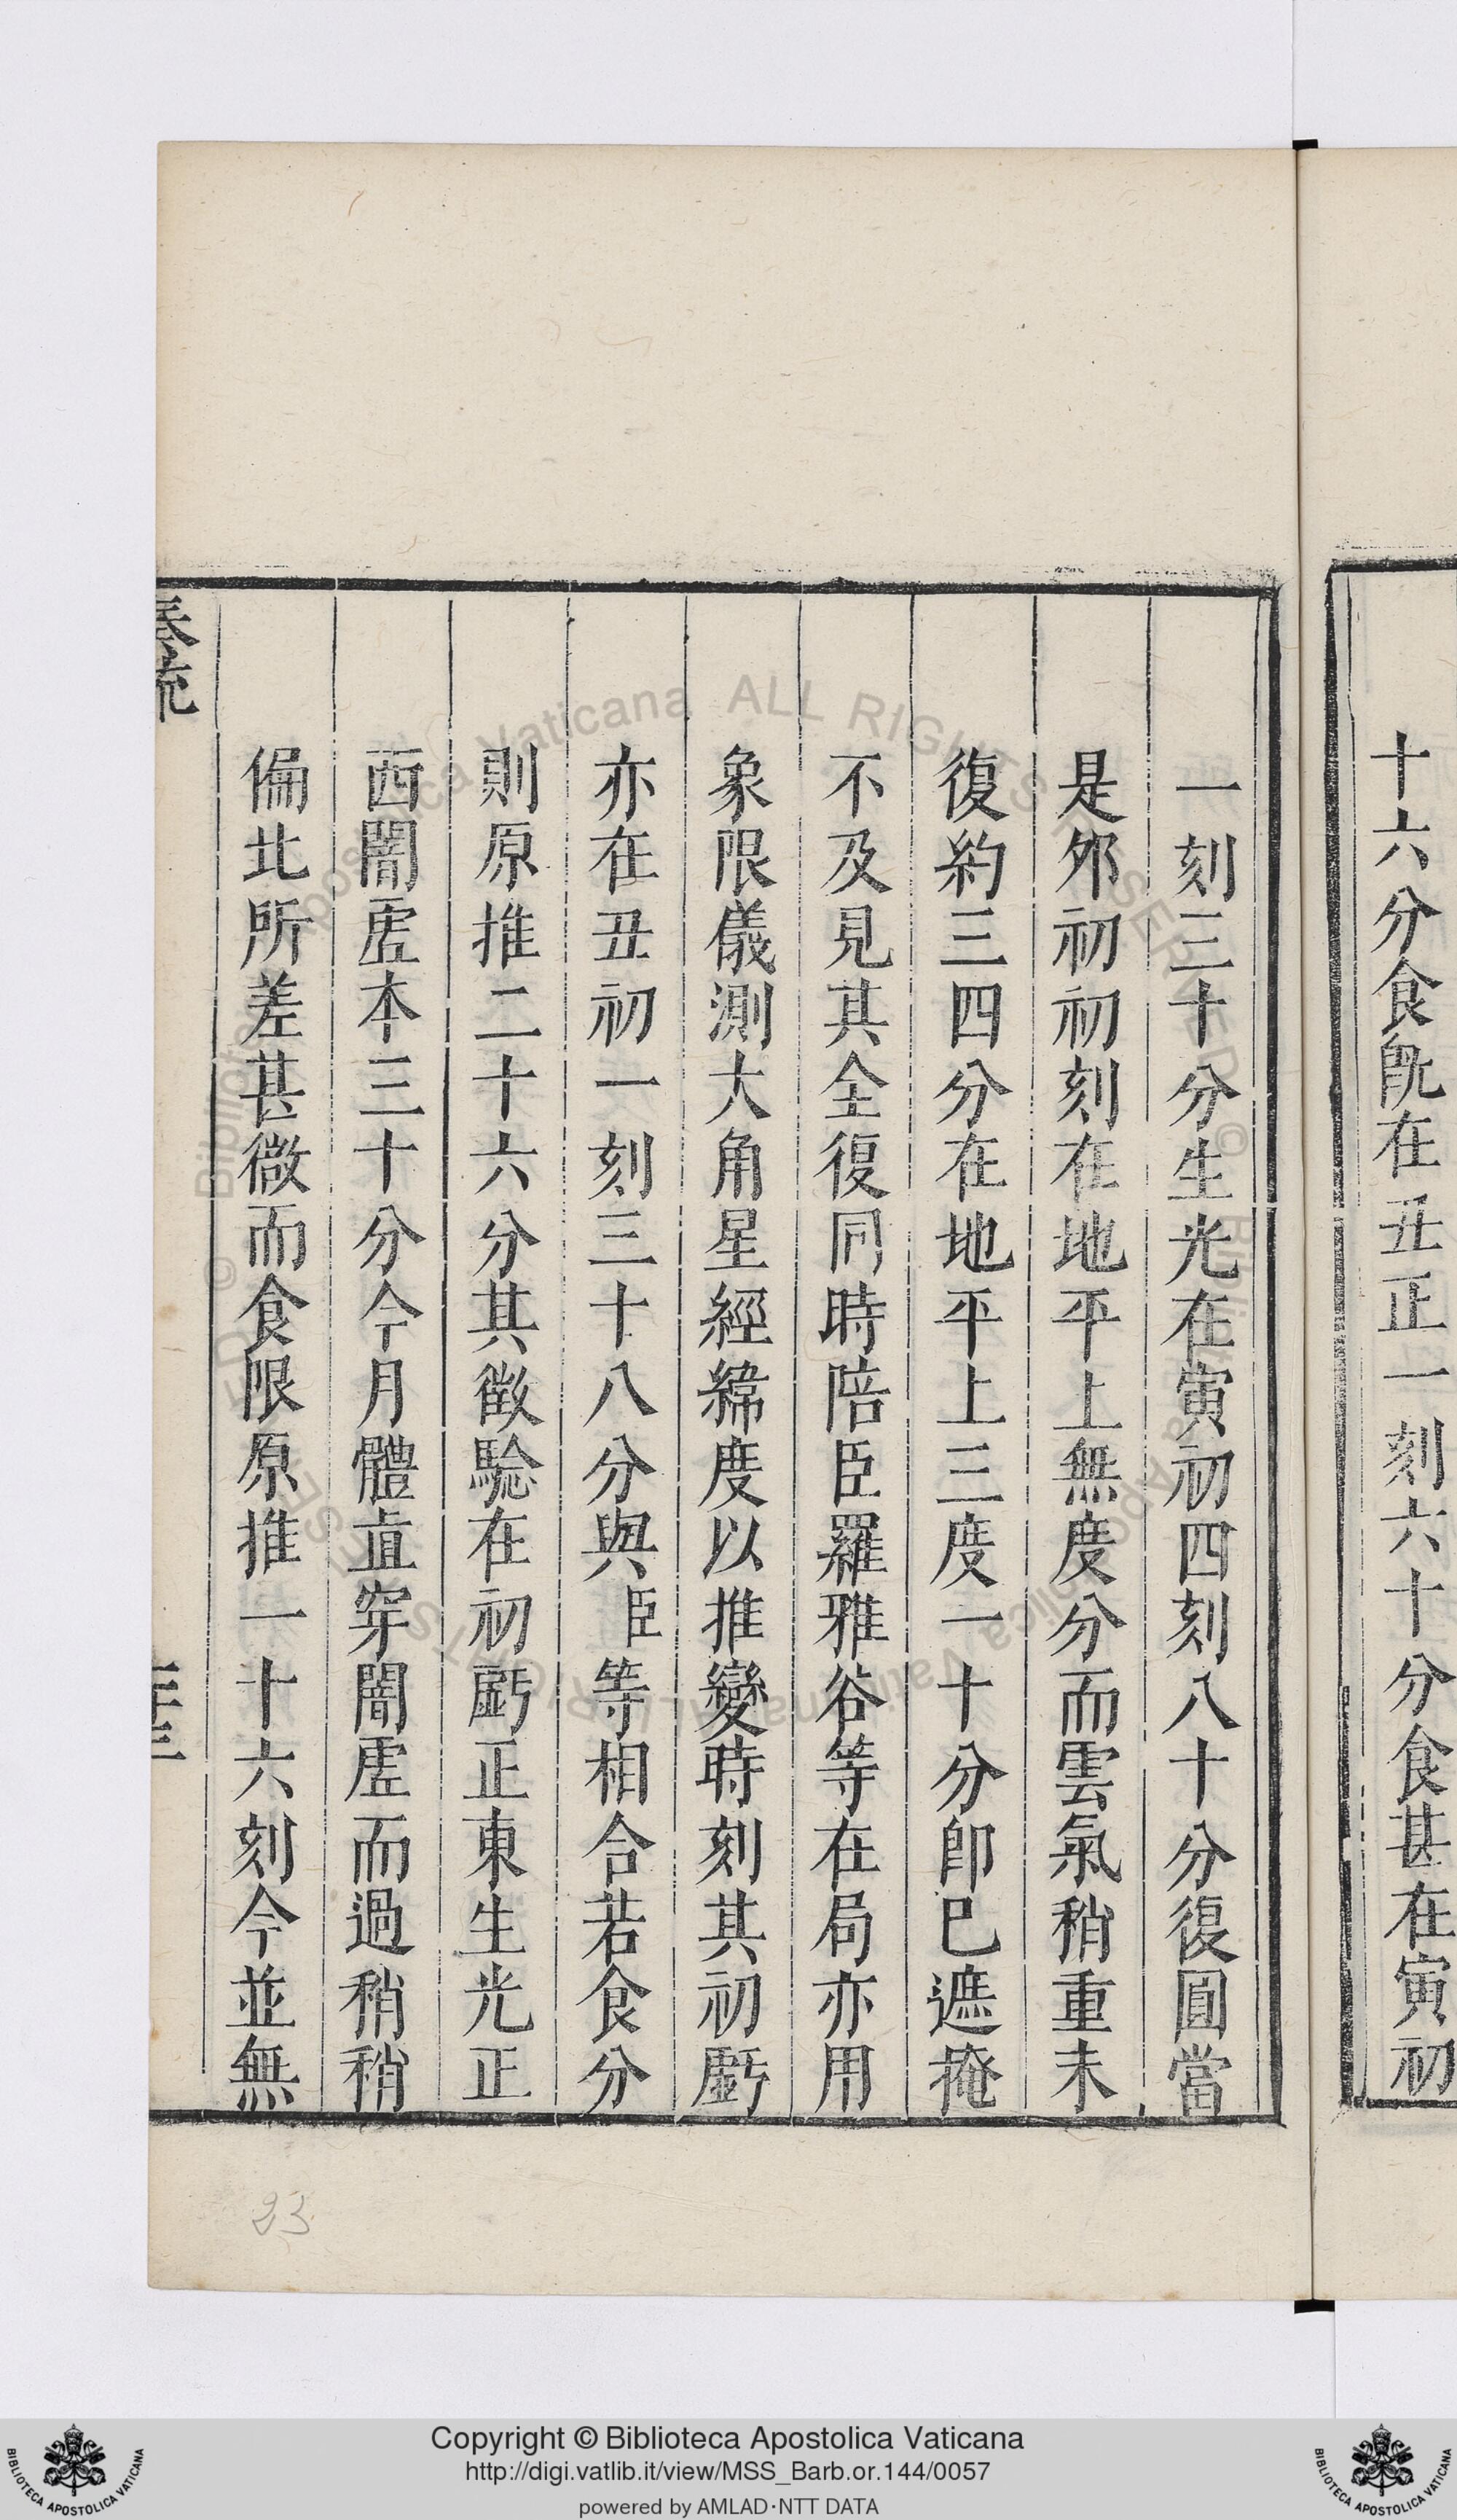 十六分食旣在丑正一刻六十分食甚在寅初
一刻三十分生光在寅初四刻八十分復圓當
是夘初初刻在地平上無度分而雲氣稍重未
復約三四分在地平上三度一十分卽巳遮掩
不及見其全復同時陪臣羅雅谷等在局亦用
象限儀測大角星經緯度以推變時刻其初虧
亦在丑初一刻三十八分與臣等相合若食分
則原推二十六分其徵驗在初虧正東生光正
西闇虛本三十分今月體直穿闇虛而過稍稍
偏北所差甚微而食限原推一十六刻今並無
奏疏
二十三
23
Copyright © Biblioteca Apostolica Vaticana
http://digi.vatlib.it/view/MSS_Barb.or.144/0057
powered by AMLAD·NTT DATA
BIBLIOTECA APOSTOLICA VATICANA
BIBLIOTECA APOSTOLICA VATICANA